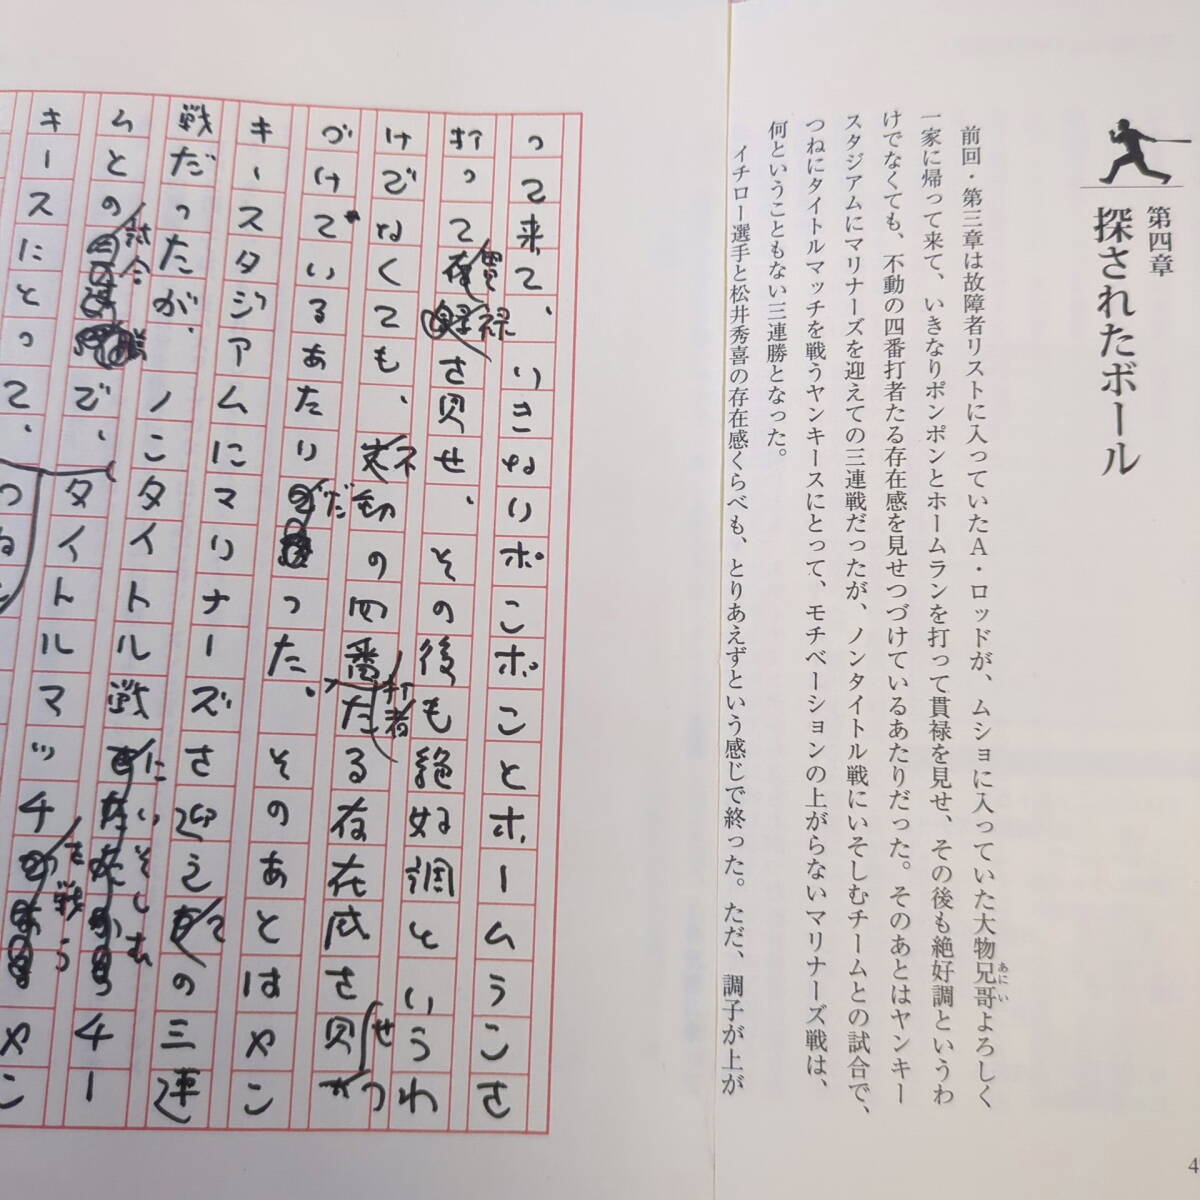 第四章
探されたボール
前回・第三章は故障者リストに入っていたA・ロッドが、ムショに入っていた大物兄哥よろしく
あにい
一家に帰って来て、いきなりポンポンとホームランを打って貫禄を見せ、その後も絶好調というわ
けでなくても、不動の四番打者たる存在感を見せつづけているあたりだった。そのあとはヤンキー
スタジアムにマリナーズを迎えての三連戦だったが、ノンタイトル戦にいそしむチームとの試合で、
つねにタイトルマッチを戦うヤンキースにとって、モチベーションの上がらないマリナーズ戦は、
何ということもない三連勝となった。
イチロー選手と松井秀喜の存在感くらべも、とりあえずという感じで終った。ただ、調子が上が
って来て、いきなりポンポンとホームランを
打って貫禄を見せ、その後も絶好調というわ
けでなくても、不動の四番打者たる存在感を見せつ
づけているあたりだった。そのあとはヤン
キースタジアムにマリナーズを迎えての三連
戦だったが、ノンタイトル戦にいそしむチー
ムとの試合で、タイトルマッチを戦うヤン
キースにとって、